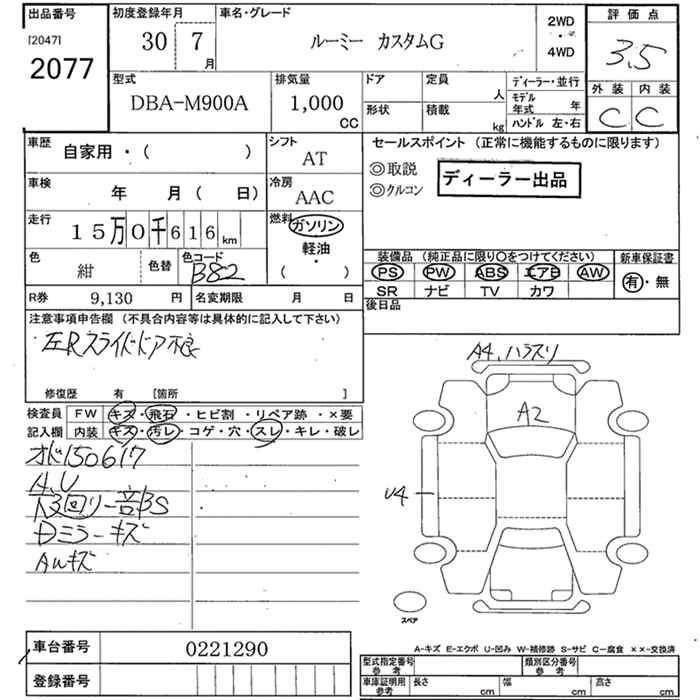 出品番号
[2047]
2077
初度登録年月
30 7 月
車名・グレード
ルーミー カスタムG
2WD
・
4WD
評価点
3.5
外装 内装
C C
型式
DBA-M900A
排気量
1,000
CC
ドア
形状
定員
人
積載
kg
ディーラー・並行
モデル年式 年
ハンドル 左・右
車歴
自家用・( )
シフト
AT
車検
年 月( 日)
冷房
AAC
走行
15万0千616km
燃料
ガソリン
軽油・
( )
色
紺
色替
色コード
B82
R券 9,130 円
名変期限 月 日
セールスポイント (正常に機能するものに限ります)
◎取説
◎クルコン
ディーラー出品
装備品 (純正品に限り○をつけてください)
PS PW ABS エアB AW
SR ナビ TV カワ
新車保証書
有・無
後日品
注意事項申告欄 (不具合内容等は具体的に記入して下さい)
左Rスライドドア不良
修復歴 有 [箇所 ]
検査員記入欄
FW キズ・飛石・ヒビ割・リペア跡・×要
内装 キズ・汚レ・コゲ・穴・スレ・キレ・破レ
オド150617
A,U
下回り一部BS
Dミラーキズ
AWキズ
A4,ハラスリ
A2
U4
スペア
A-キズ E-エクボ U-凹み W-補修跡 S-サビ C-腐食 ××-交換済
車台番号 0221290
登録番号
型式指定番号 参考
類別区分番号 参考
車庫証明用 参考
長さ cm
幅 cm
高さ cm